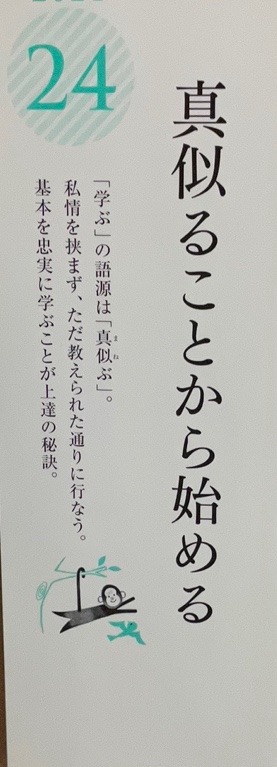 24
真似ることから始める
「学ぶ」の語源は「真似ぶ」。
まね
私情を挟まず、ただ教えられた通りに行なう。
基本を忠実に学ぶことが上達の秘訣。